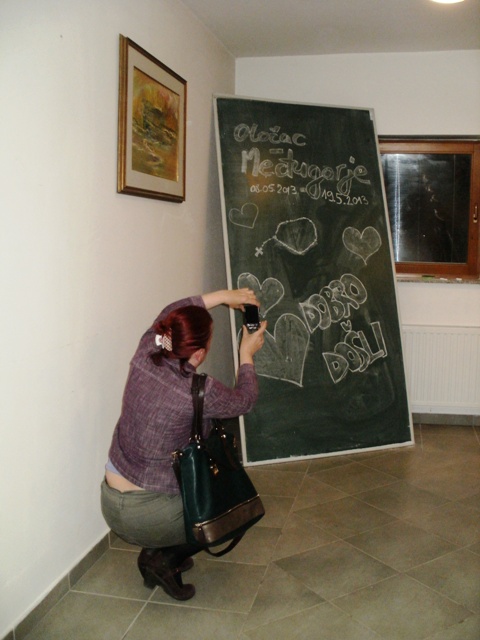 Olovac
Međugorje
06.05.2013 - 19.5.2013
DOBRO
DOŠLI